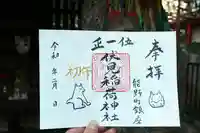 奉拝
熊野町銀座
正一位
伏見稲荷神社
初午
令和 年 月 日